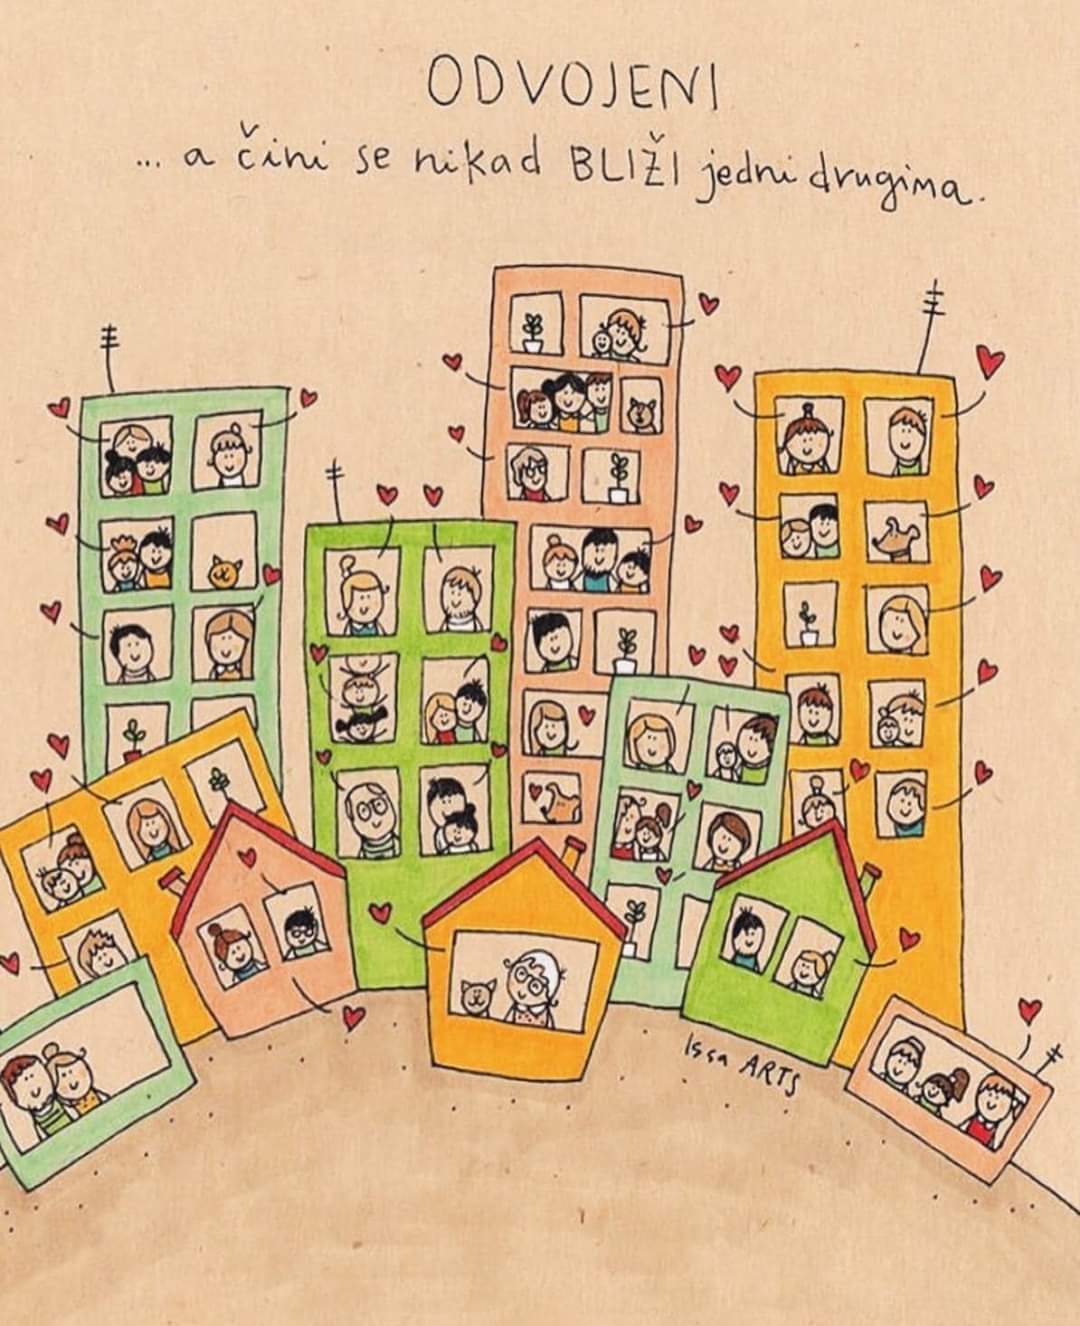 ODVOJENI
... a čini se nikad BLIŽI jedni drugima.
Issa ARTS